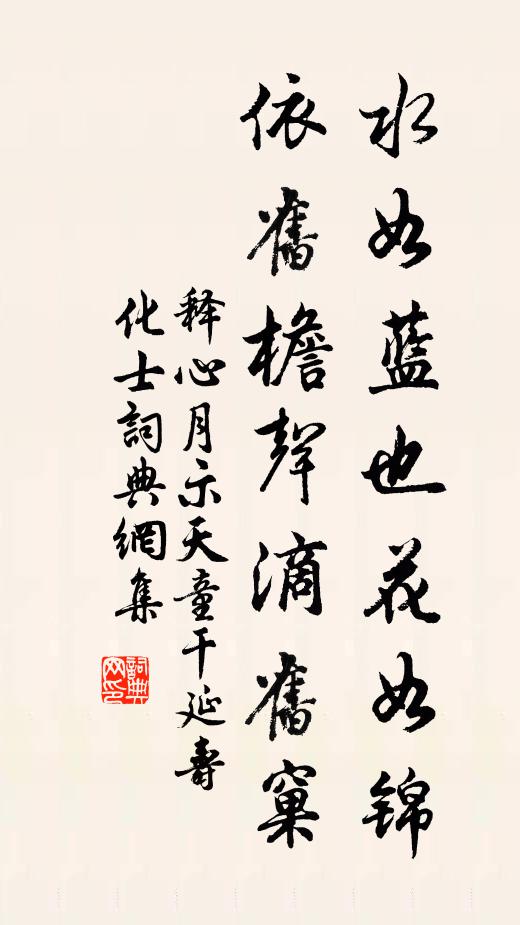 水如藍也花如錦
依舊檐聲滴舊窠
释心月示天童干延壽
化士詞典網集
詞典网印